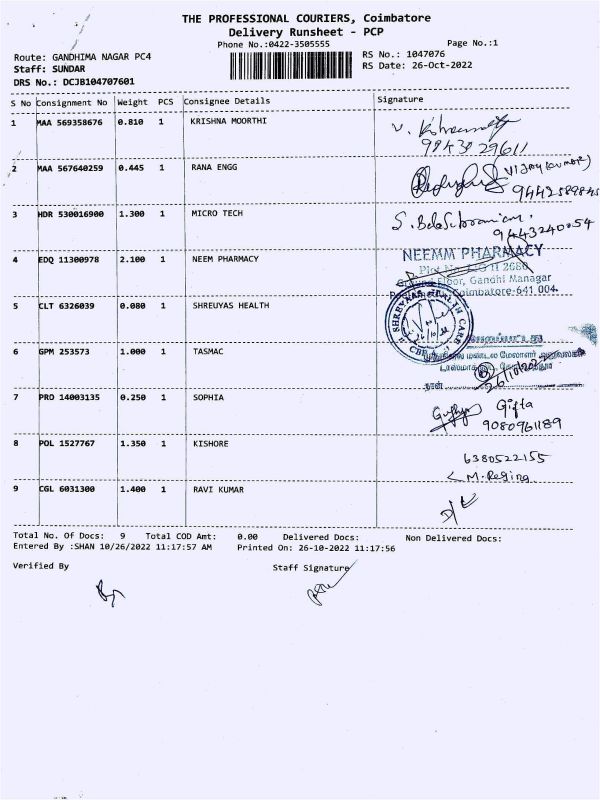 THE PROFESSIONAL COURIERS, Coimbatore
Delivery Runsheet - PCP
Phone No.:0422-3505555
Page No.:1
Route: GANDHIMA NAGAR PC4
RS No.: 1047076
Staff: SUNDAR
RS Date: 26-Oct-2022
DRS No.: DCJB104707601
S No Consignment No Weight PCS Consignee Details Signature
1 MAA 569358676 0.810 1 KRISHNA MOORTHI
9843029611
2 MAA 567640259 0.445 1 RANA ENGG
3 HDR 530016900 1.300 1 MICRO TECH S. BalaSubramaniam.
9443240054
4 EDQ 11300978 2.100 1 NEEM PHARMACY NEEMM PHARMACY
Floor, Gandhi Managar
Coimbatore-641 004.
5 CLT 6326039 0.080 1 SHREUYAS HEALTH SHREUYAS HEALTH CARE
CBE
6 GPM 253573 1.000 1 TASMAC
மண்டல மேலாளர்
26/10/2022
நாள்
7 PRO 14003135 0.250 1 SOPHIA Gifta
9080961189
8 POL 1527767 1.350 1 KISHORE 6380522155
M. Regina
9 CGL 6031300 1.400 1 RAVI KUMAR D/L
Total No. Of Docs: 9 Total COD Amt: 0.00 Delivered Docs: Non Delivered Docs:
Entered By :SHAN 10/26/2022 11:17:57 AM Printed On: 26-10-2022 11:17:56
Verified By Staff Signature